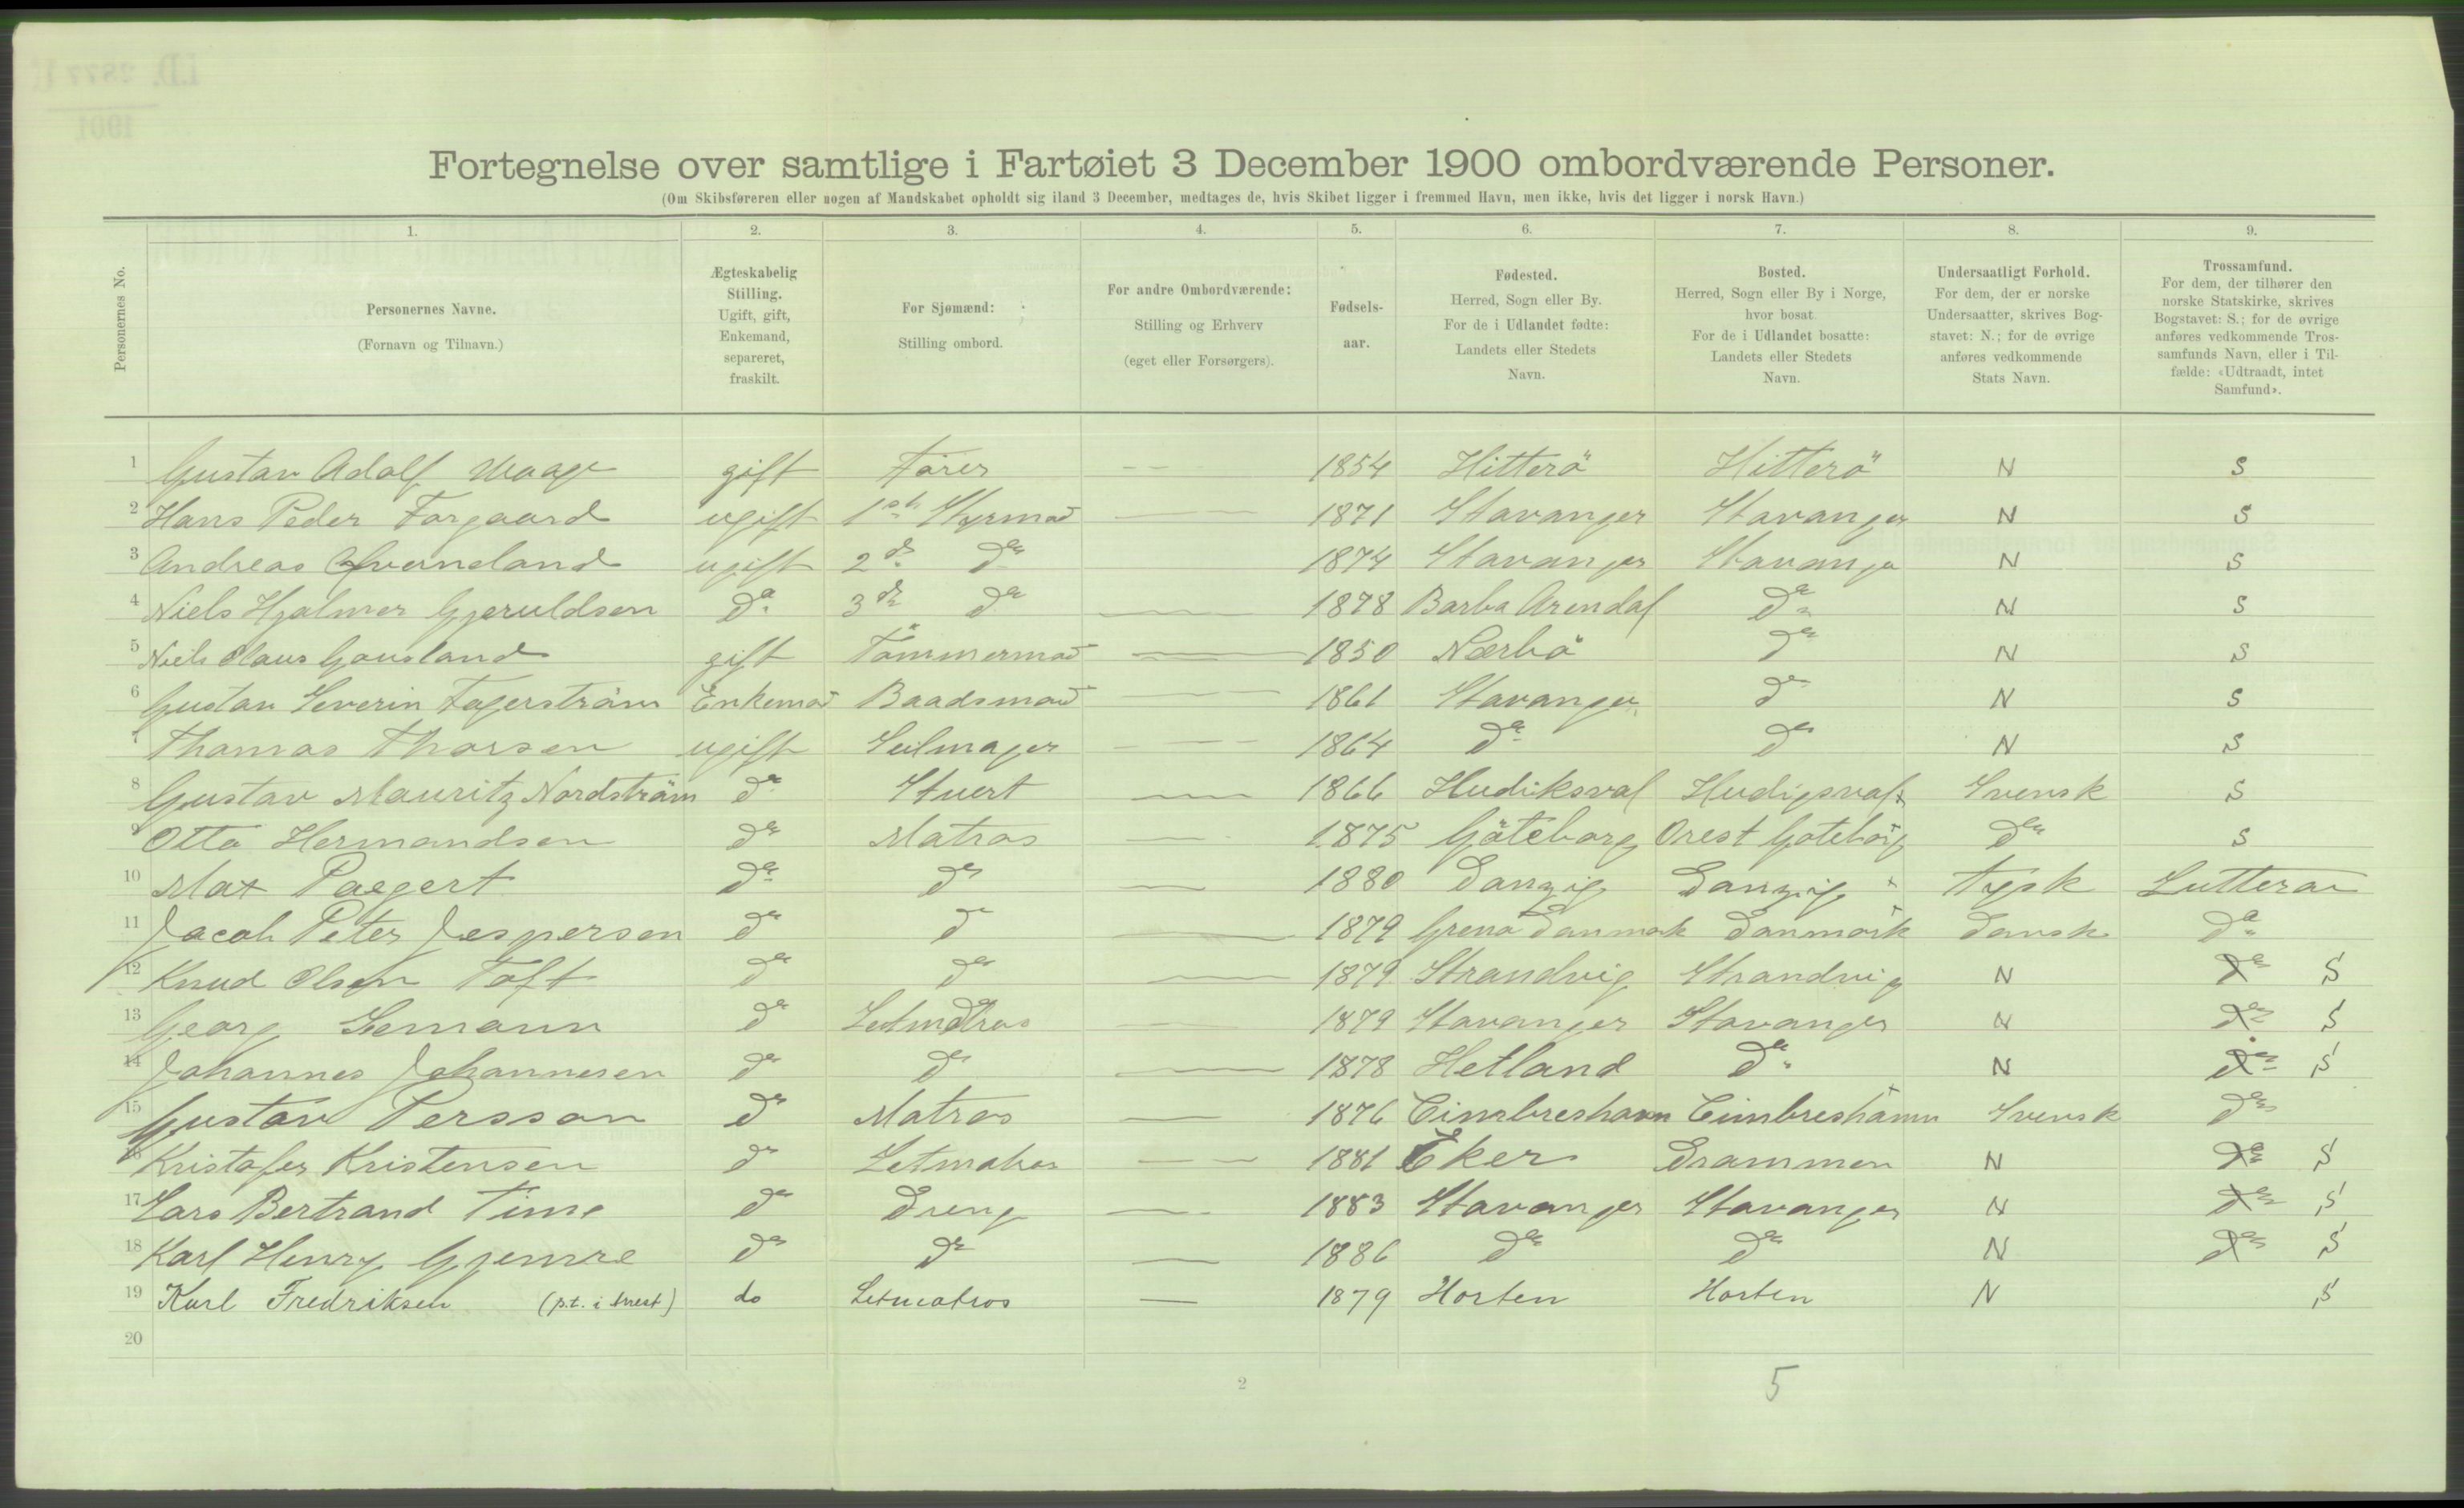 Fortegnelse over samtlige i Fartøiet 3 December 1900 ombordværende Personer.
(Om Skibsføreren eller nogen af Mandskabet opholdt sig iland 3 December, medtages de, hvis Skibet ligger i fremmed Havn, men ikke, hvis det ligger i norsk Havn.)
1. 2. 3. 4. 5. 6. 7. 8. 9.
Personernes No.
Personernes Navne.
(Fornavn og Tilnavn.)
Ægteskabelig
Stilling.
Ugift, gift,
Enkemand,
separeret,
fraskilt.
For Sjømænd:
Stilling ombord.
For andre Ombordværende:
Stilling og Erhverv
(eget eller Forsørgers).
Fødsels-
aar.
Fødested.
Herred, Sogn eller By.
For de i Udlandet fødte:
Landets eller Stedets
Navn.
Bosted.
Herred, Sogn eller By i Norge,
hvor bosat.
For de i Udlandet bosatte:
Landets eller Stedets
Navn.
Undersaatligt Forhold.
For dem, der er norske
Undersaatter, skrives Bog-
stavet: N.; for de øvrige
anføres vedkommende
Stats Navn.
Trossamfund.
For dem, der tilhører den
norske Statskirke, skrives
Bogstavet: S.; for de øvrige
anføres vedkommende Tros-
samfunds Navn, eller i Til-
fælde: «Udtraadt, intet
Samfund».
1 Gustav Adolf Waage gift Förer — 1854 Hitterö Hitterö N S
2 Hans Peder Forgaard ugift 1ste Styrmad — 1871 Stavanger Stavanger N S
3 Andreas ugift 2d do 1874 Stavanger Stavanger N S
4 Niels Hjalmer Gjeruldsen do 3de do — 1878 Barbo Arendal do N S
5 Niels Claus Gousland gift Tömmermad — 1850 Nærbö do N S
6 Gustav Severin Fagerström Enkemad Baadsmad — 1861 Stavanger do N S
7 Thomas Thorsen ugift Seilmager — 1864 do do N S
8 Gustav Mauritz Nordström do Stuert — 1866 Hudiksval Hudigsval Svensk S
9 Otto Hermandsen do Matros — 1875 Göteborg Orest Goteborg do S
10 Max Paegert do do — 1880 Danzig Danzig Tysk Lutteran
11 Jacob Peter Jespersen do do — 1879 Grena Danmark Danmark Dansk do
12 Knud Olsen Toft do do — 1879 Strandvig Strandvig N do S
13 Georg Lemann do Letmatros — 1879 Stavanger Stavanger N do S
14 Johannes Johannesen do do — 1878 Hetland do N do S
15 Gustav Persson do Matros — 1876 Cimbreshavn Cimbreshamn Svensk do
16 Kristofer Kristensen do Letmatros — 1881 Eker Drammen N do S
17 Lars Bertrand Time do Dreng — 1883 Stavanger Stavanger N do S
18 Karl Henry Gjemre do do — 1886 do do N do S
19 Karl Fredriksen (p.t. i Arrest) do Letmatros — 1879 Horten Horten N S
20
2
5